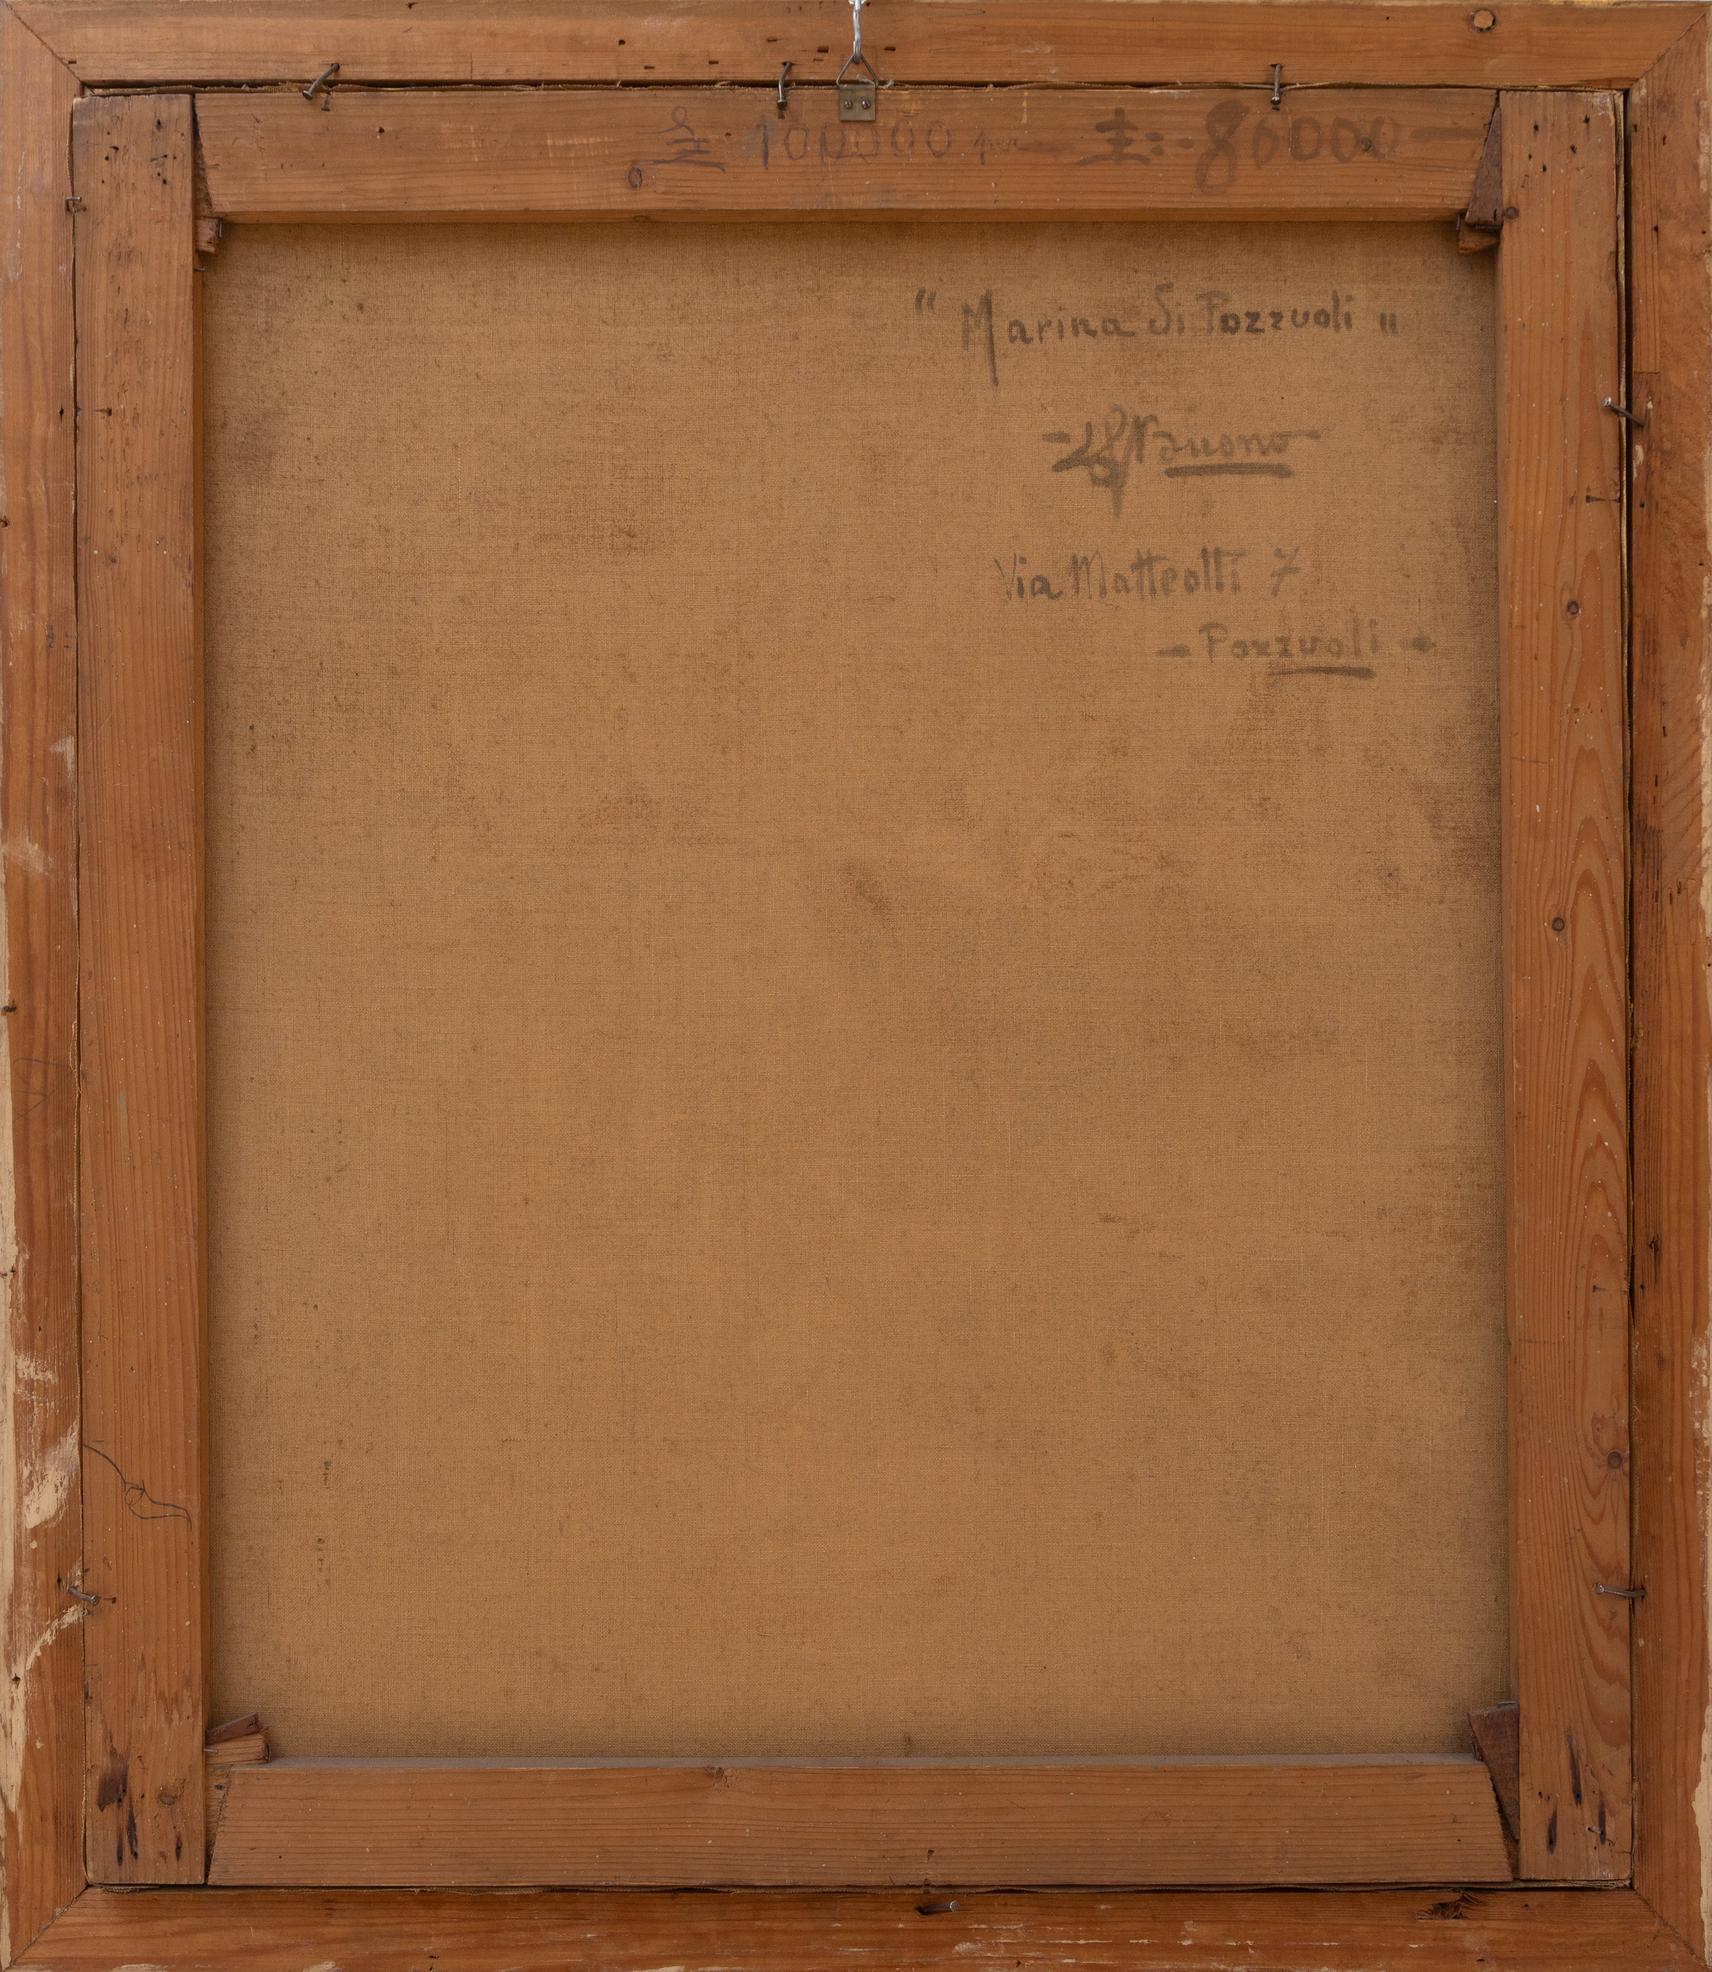 £ 100000 £:- 86000 —
" Marina di Pozzuoli "
Buono
Via Matteotti 7
- Pozzuoli -